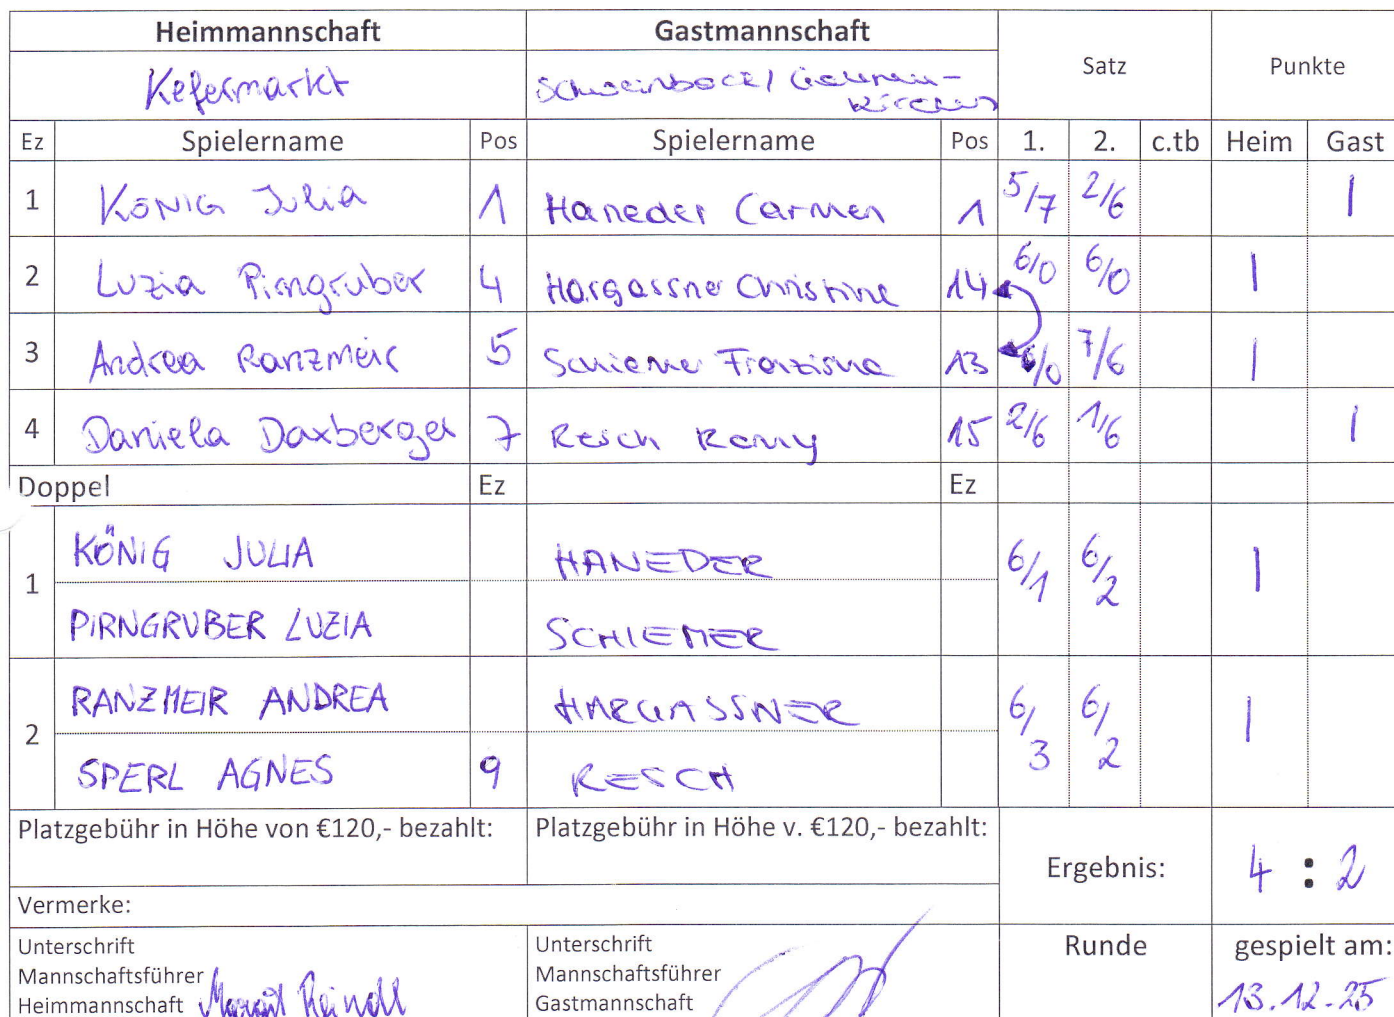 Heimmannschaft Gastmannschaft Satz Punkte
Kefermarkt
Ez Spielername Pos Spielername Pos 1. 2. c.tb Heim Gast
1 KÖNIG Julia 1 Haneder Carmen 1 5/7 2/6 1
2 Luzia Pirngruber 4 Hargassner Christine 14 6/0 6/0 1
3 Andrea Ranzmeir 5 Schiemer 13 6/0 7/6 1
4 Daniela Daxberger 7 Resch 15 2/6 1/6 1
Doppel Ez Ez
1 KÖNIG JULIA HANEDER 6/1 6/2 1
PIRNGRUBER LUZIA SCHIEMER
2 RANZMEIR ANDREA HARGASSNER 6/3 6/2 1
SPERL AGNES 9 RESCH
Platzgebühr in Höhe von €120,- bezahlt: Platzgebühr in Höhe v. €120,- bezahlt:
Ergebnis: 4 : 2
Vermerke:
Unterschrift Unterschrift Runde gespielt am:
Mannschaftsführer Mannschaftsführer
Heimmannschaft Gastmannschaft 13.12.25